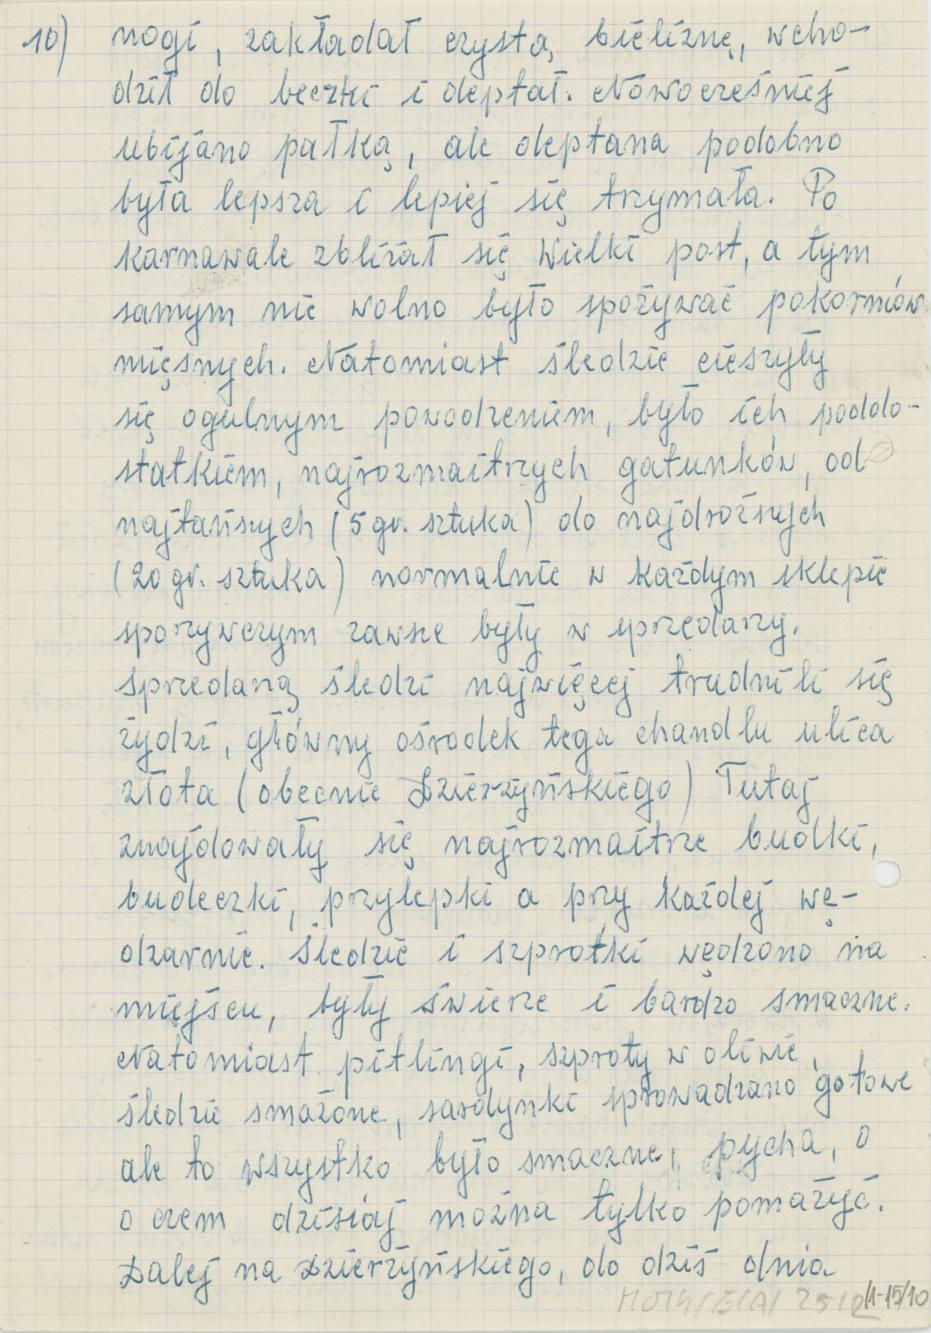 10) nogi, zakładał czystą bieliznę, wcho-
dził do beczki i deptał. Nowocześniej
ubijano pałką, ale deptana podobno
była lepsza i lepiej się trzymała. Po
karnawale zbliżał się Wielki post, a tym
samym nie wolno było spożywać pokormów
mięsnych. Natomiast śledzie cieszyły
się ogulnym powodzeniem, było ich poddo-
statkiem, najrozmaitrzych gatunków, od
najtańszych (5 gr. sztuka) do najdroższych
(20 gr. sztuka) normalnie w każdym sklepie
sporzywczym zawsze były w sprzedarzy.
Sprzedarzą śledzi najwięcej trudnili się
żydzi, główny ośrodek tego chandlu ulica
złota (obecnie Dzierzyńskiego) Tutaj
znajdowały się najrozmaitrze budki,
budeczki, przylepki a przy każdej wę-
dzarnie. Śledzie i szprotki wędzono na
miejscu, były świerze i bardzo smaczne.
Natomiast pitlingi, szproty w oliwie,
śledzie smażone, sardynki sprowadzano gotowe
ale to wszystko było smaczne, pycha, o
o czem dzisiaj można tylko pomażyć.
Dalej na Dzierżyńskiego, do dziś dnia
/1-15/10